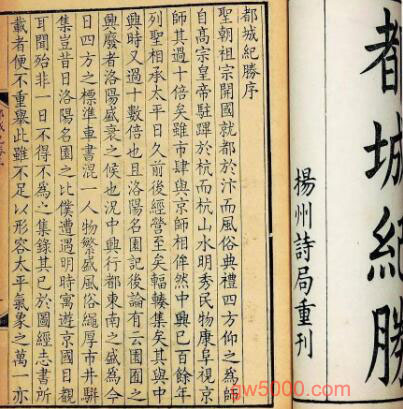 都城紀勝
揚州詩局重刊
都城紀勝序
聖朝祖宗開國就都於汴而風俗典禮四方仰之為師
自高宗皇帝駐蹕於杭而杭山水明秀民物康阜視京
師其過十倍矣雖市肆與京師相侔然中興已百餘年
列聖相承太平日久前後經營至矣輻輳集矣其與中
興時又過十數倍也且洛陽名園記後論有云園囿之
興廢者洛陽盛衰之候也況中興行都東南之盛為今
日四方之標準車書混一人物繁盛風俗繩厚市井駢
集豈昔日洛陽名園之比僕遭遇明時寓遊京國目觀
耳聞殆非一日不得不為之集錄其已於圖經志書所
載者便不重舉此雖不足以形容太平氣象之萬一亦
gw5000.com